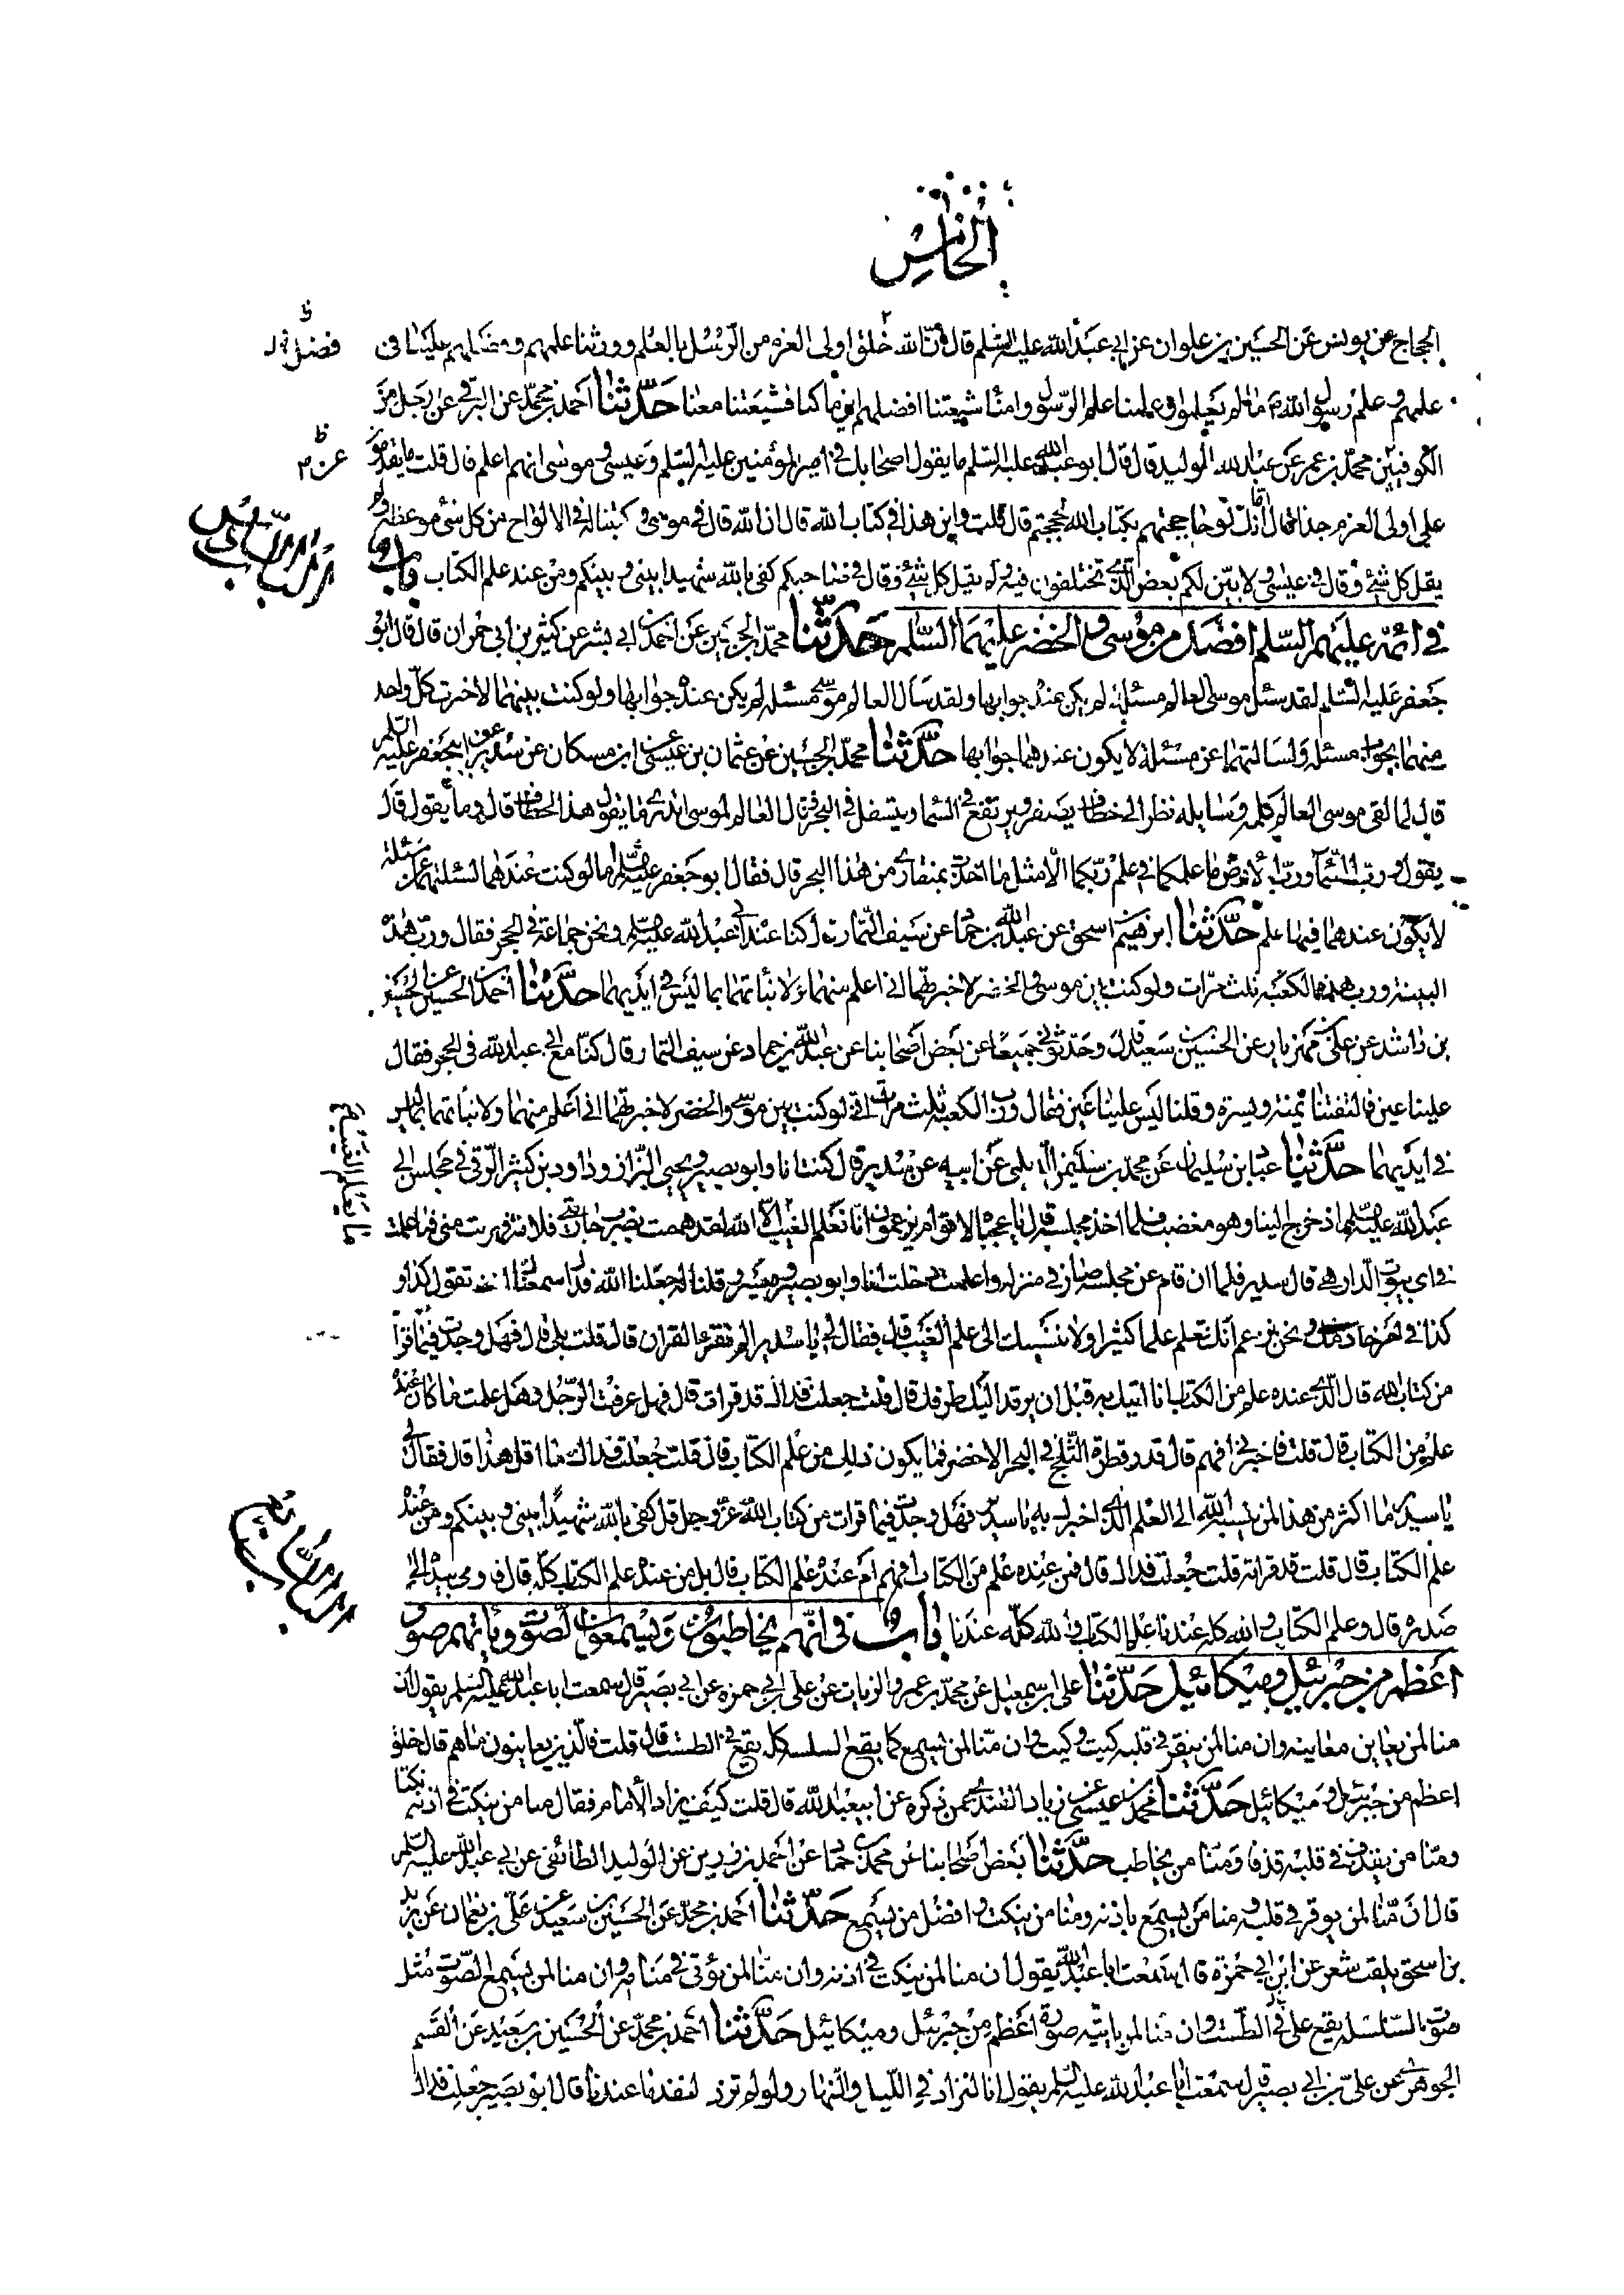 الخامس
الحجاج عن يونس عن الحسين بن علوان عن ابي عبد الله عليه السلم قال ان الله خلق اولى العزم من الرسل بالعلم وورثنا علمهم وفضلهم علينا فى
فضلنا
علمهم وعلم رسول الله ما لم يعلموا وعلمنا علم الرسول وامنا شيعتنا افضلهم اين ما كنا فشيعتنا معنا حدثنا احمد بن محمد عن البرقي عن رجل من
الكوفيين محمد بن عمر عن عبد الله الوليد قال قال ابو عبد الله عليه السلم ما يقول اصحابك في امير المؤمنين عليه السلم وعيسى وموسى انهم اعلم قال قلت ما يقدمون
عن
على اولى العزم احدا فقال اما انك لو حاججتهم بكتاب الله لحججتهم قال قلت واين هذا في كتاب الله قال ان الله قال في موسى وكتبنا له في الالواح من كل شئ موعظة ولم
يقل كل شئ وقال في عيسى ولابين لكم بعض الذى تختلفون فيه ولم يقل كل شئ وقال في صاحبكم كفى بالله شهيدا بينى وبينكم ومن عنده علم الكتاب باب
الباب السادس
في ائمة عليهم السلم افضل من موسى والخضر عليهما السلم حدثنا محمد بن الحسين عن احمد بن ابي بشر عن كثير بن ابي حمران قال قال ابو
جعفر عليه السلم لقد سئل موسى العالم مسئلة لم يكن عنده جوابها ولقد سأل العالم موسى مسئلة لم يكن عنده جوابها ولو كنت بينهما لاخبرت كل واحد
منهما بجواب مسئلته ولسالتهما عن مسئلة لا يكون عندهما جوابها حدثنا محمد بن الحسين عن عثمان بن عيسى عن ابن مسكان عن سدير عن ابيجعفر عليه السلم
قال لما لقى موسى العالم كلمه وسايله نظر الى خطاف يصفر ويرتفع في السماء ويتسفل في البحر فقال العالم لموسى اتدرى ما يقول هذا الخطاف قال وما يقول قال
يقول ورب السماء ورب الارض ما علمكما في علم ربكما الا مثل ما اخذت بمنقارى من هذا البحر قال فقال ابو جعفر عليه السلم اما لو كنت عندهما لسئلتهما عن مسئلة
لا يكون عندهما فيها علم حدثنا ابرهيم بن اسحق عن عبد الله بن حماد عن سيف التمار قال كنا عند ابي عبد الله عليه السلم ونحن جماعة في الحجر فقال ورب هذه
البينة ورب هذه الكعبة ثلث مرات ولو كنت بين موسى والخضر لاخبرتهما انى اعلم منهما ولانبأتهما بما ليس في ايديهما حدثنا احمد بن الحسين عن الحسين
بن راشد عن على بن مهزيار عن الحسين بن سعيد قال وحدثونى جميعا عن بعض اصحابنا عن عبد الله بن حماد عن سيف التمار قال كنا مع ابي عبد الله في الحجر فقال
علينا عين فالتفتنا يمنة ويسرة وقلنا ليس علينا عين فقال ورب الكعبة ثلث مرات انى لو كنت بين موسى والخضر لاخبرتهما انى اعلم منهما ولانبأتهما بما ليس
في ايديهما حدثنا عباد بن سليمان عن محمد بن سليمن الديلمي عن ابيه عن سدير قال كنت انا وابو بصير ويحيى البزاز وداود بن كثير الرقى في مجلس ابي
ما يعلم الغيب
عبد الله عليه السلم اذ خرج الينا وهو مغضب فلما اخذ مجلسه قال يا عجباه لاقوام يزعمون انا نعلم الغيب الا الله لقد هممت بضرب جاريتى فلانة فهربت منى فما علمت
في اى بيوت الدار هى قال سدير فلما ان قام عن مجلسه وصار في منزله واعلمت دخلت انا وابو بصير وميسر وقلنا له جعلنا الله فداك سمعناك انت تقول كذا و
كذا في امر خادمتك ونحن نزعم انك تعلم علما كثيرا ولا ننسبك الى علم الغيب قال فقال لى يا سدير الم تقرء القران قال قلت بلى قال فهل وجدت فيما قرأت
من كتاب الله قال الذى عنده علم من الكتاب انا اتيك به قبل ان يرتد اليك طرفك قال قلت جعلت فداك قد قرات قال فهل عرفت الرجل وهل علمت ما كان عنده
علم من الكتاب قال قلت فاخبرنى افهم قال قدر قطرة الثلج في البحر الاخضر فما يكون ذلك من علم الكتاب قال قلت جعلت فداك ما اقل هذا قال فقال لى
يا سدير ما اكثر من هذا لمن ينسبه الله الى العلم الذى اخبرك به يا سدير فهل وجدت فيما قرات من كتاب الله عز وجل قل كفى بالله شهيدا بينى وبينكم ومن عنده
علم الكتاب قال قلت قد قراته قلت جعلت فداك قال فمن عنده علم من الكتاب افهم ام عنده علم الكتاب قال بل من عنده علم الكتاب كله قال فاومى بيده الى
الباب السابع
صدره قال وعلم الكتاب والله كله عندنا علم الكتاب والله كله عندنا باب في انهم يخاطبون ويسمعون الصوت وياتيهم صور
اعظم من جبرئيل وميكائيل حدثنا على بن اسمعيل عن محمد بن عمرو الزيات عن على بن ابي حمزه عن ابي بصير قال سمعت ابا عبد الله عليه السلم يقول ان
منا لمن يعاين معاينة وان منا لمن ينقر في قلبه كيت وكيت وان منا لمن يسمع كما يقع السلسله كله يقع في الطست قال قلت فالذين يعاينون ما هم قال خلق
اعظم من جبرئيل وميكائيل حدثنا محمد بن عيسى عن زياد القندى عمن ذكره عن ابيعبد الله قال قلت كيف يزاد الامام فقال منا من ينكت في اذنه نكتا
ومنا من يقذف في قلبه قذفا ومنا من يخاطب حدثنا بعض اصحابنا عن محمد بن حماد عن احمد بن رزين عن الوليد الطائفى عن ابي عبد الله عليه السلم
قال ان منا لمن يوقر في قلبه ومنا من يسمع باذنه ومنا من ينكت وافضل من يسمع حدثنا احمد بن محمد عن الحسين بن سعيد عن على بن نعمان عن يزيد
بن اسحق يلقب شعر عن ابن ابي حمزة قال سمعت ابا عبد الله يقول ان منا لمن ينكت في اذنه وان منا لمن يؤتى في منامه وان منا لمن يسمع الصوت مثل
صوت السلسله يقع على في الطست وان منا لمن ياتيه صورة اعظم من جبرئيل وميكائيل حدثنا احمد بن محمد عن الحسين بن سعيد عن القسم
الجوهرى عن على بن ابي بصير قال سمعت ابا عبد الله عليه السلم يقول انا لنزاد في الليل والنهار ولو لم نزد لنفد ما عندنا قال ابو بصير جعلت فداك